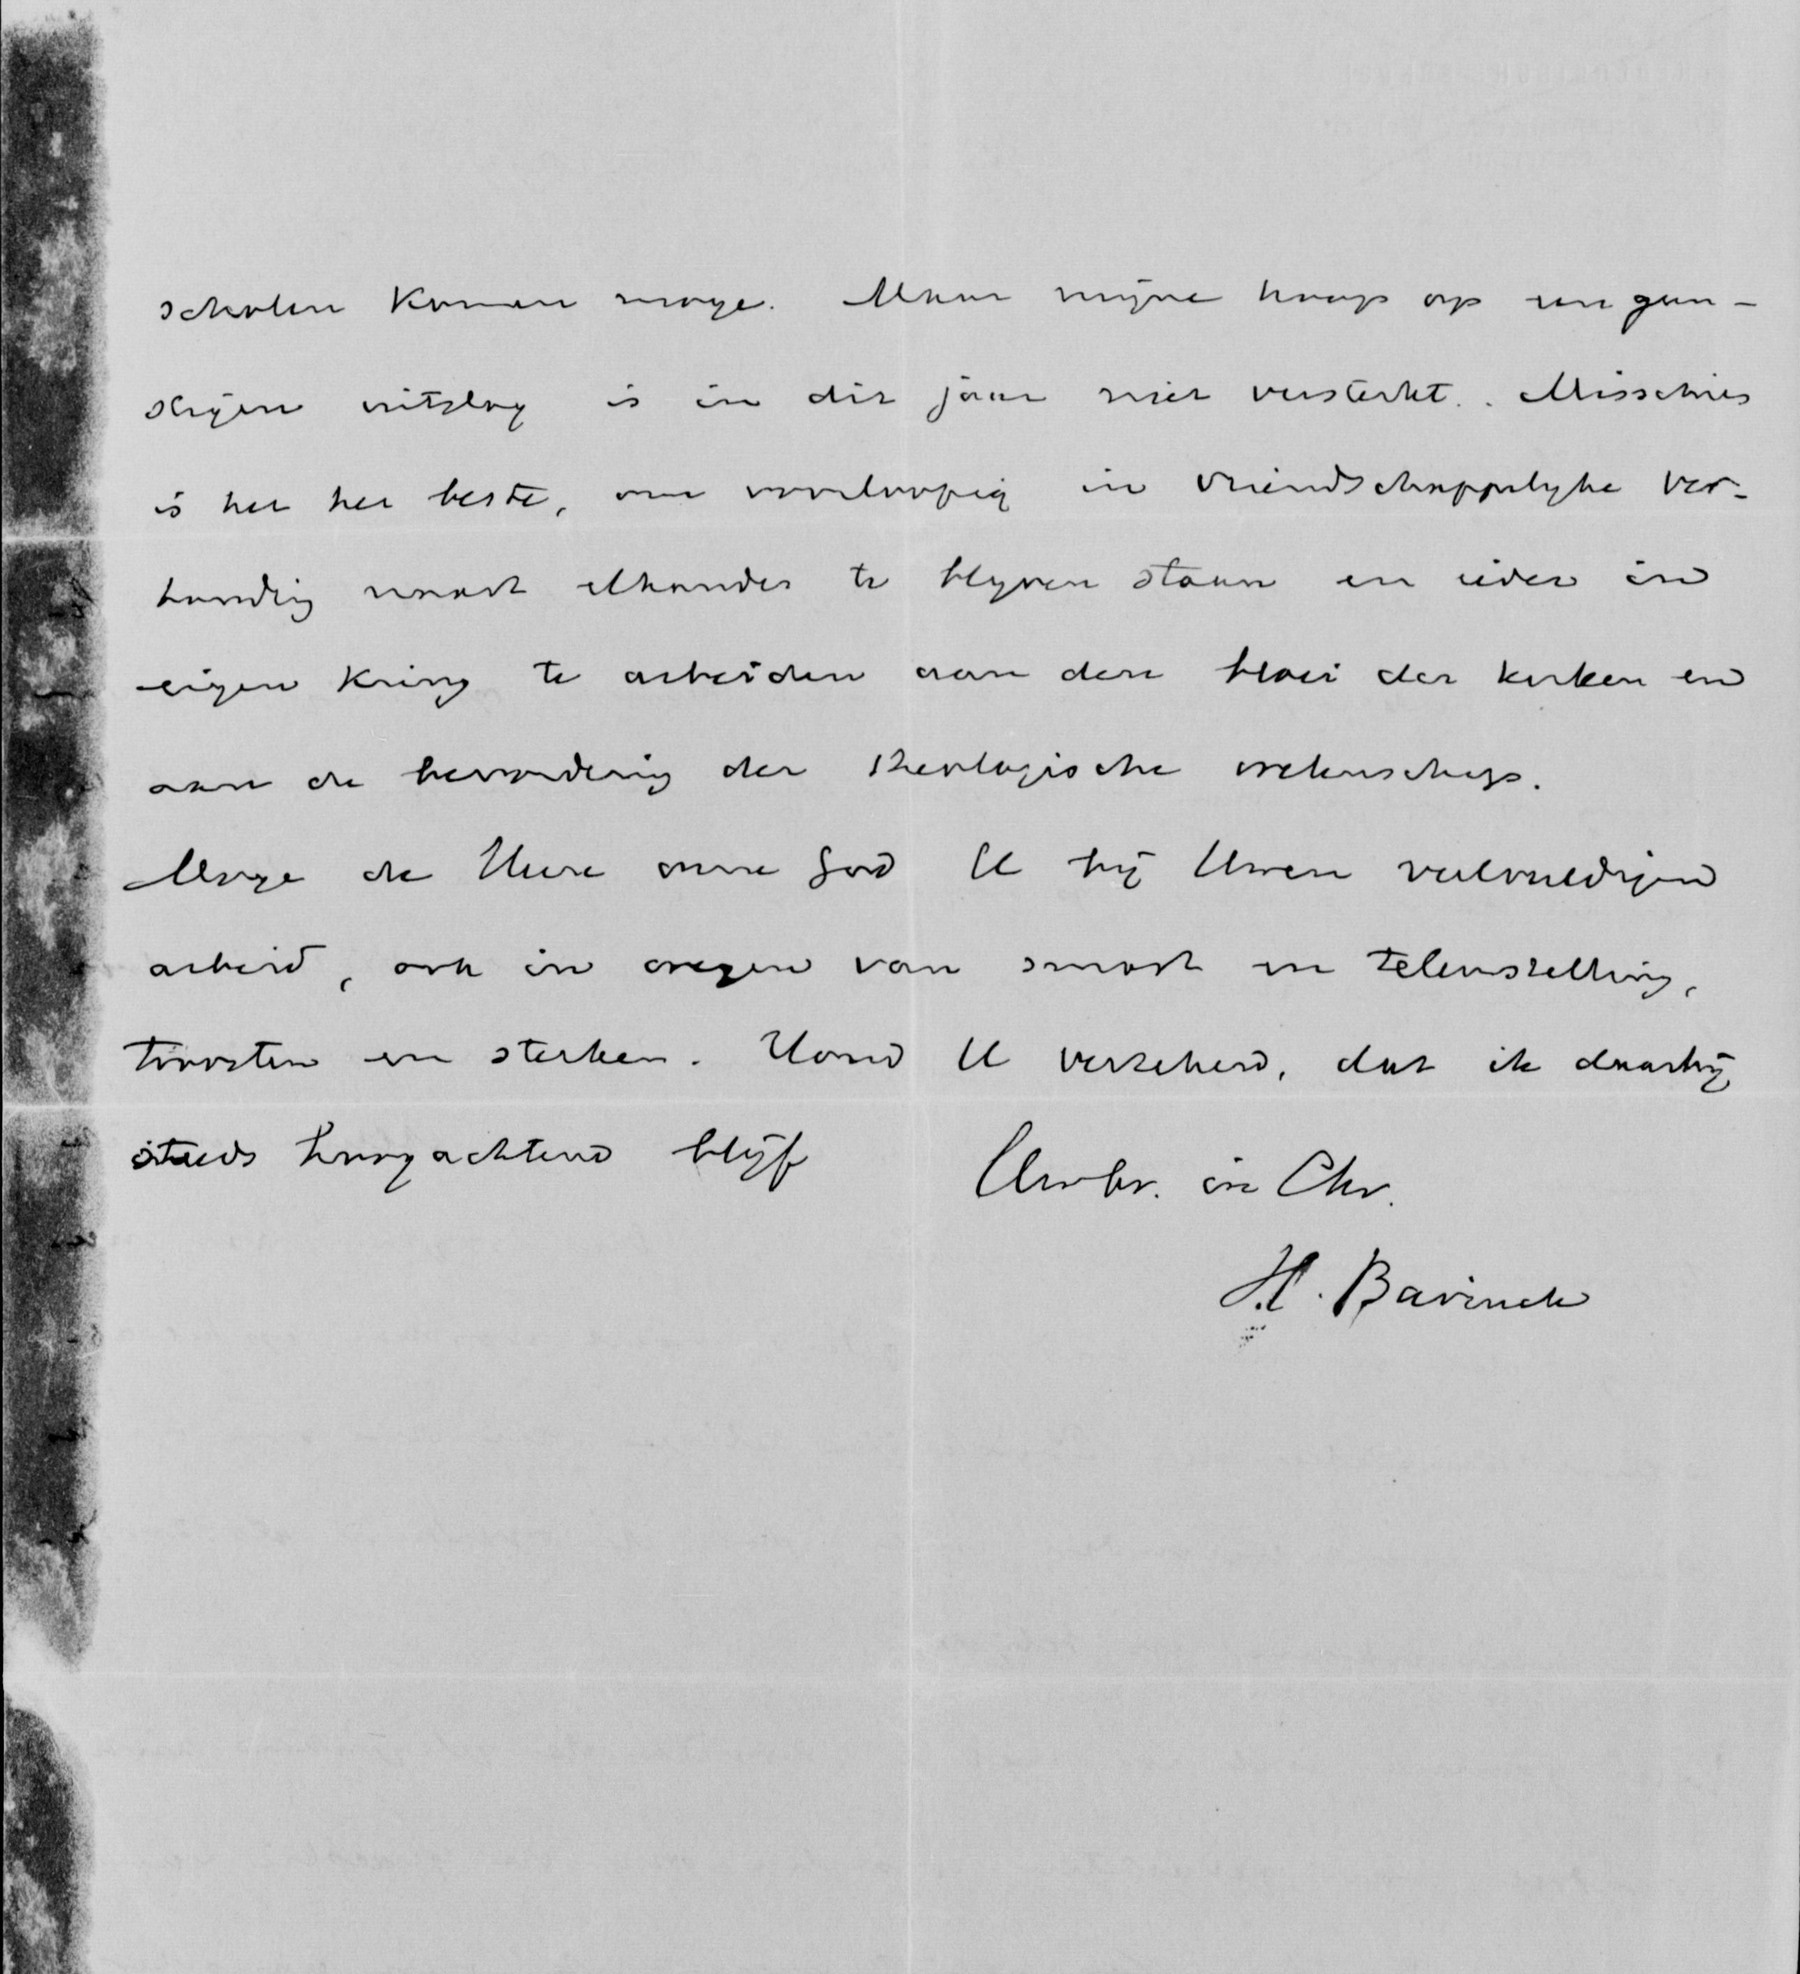 scholen komen moge. Maar mijne hoop op een gun-
stigen uitslag is in dit jaar niet versterkt. Misschien
is het het beste, om voorloopig in vriendschappelyke ver-
houding naast elkander te blyven staan en ieder in
eigen kring te arbeiden aan den bloei der kerken en
aan de bevordering der theologische wetenschap.
Moge de Heere onze God U bij Uwen veelvuldigen
arbeid, ook in dagen van smart en teleurstelling,
troosten en sterken. Houd U verzekerd, dat ik daarbij
steeds hoogachtend blijf
Uw br. in Chr.
H. Bavinck